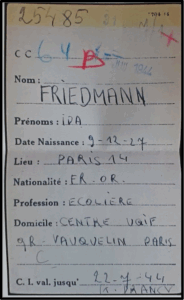 25485
C C 64 B
Nom :
FRIEDMANN
Prénoms : iDA
Date Naissance : 9-12-27
Lieu : PARIS 14
Nationalité : FR. OR.
Profession : ECOLIÈRE
Domicile : CENTRE UGiF
9R. VAUQUELIN PARIS
C
C. I. val. jusqu' 22-7-44
DRANCY